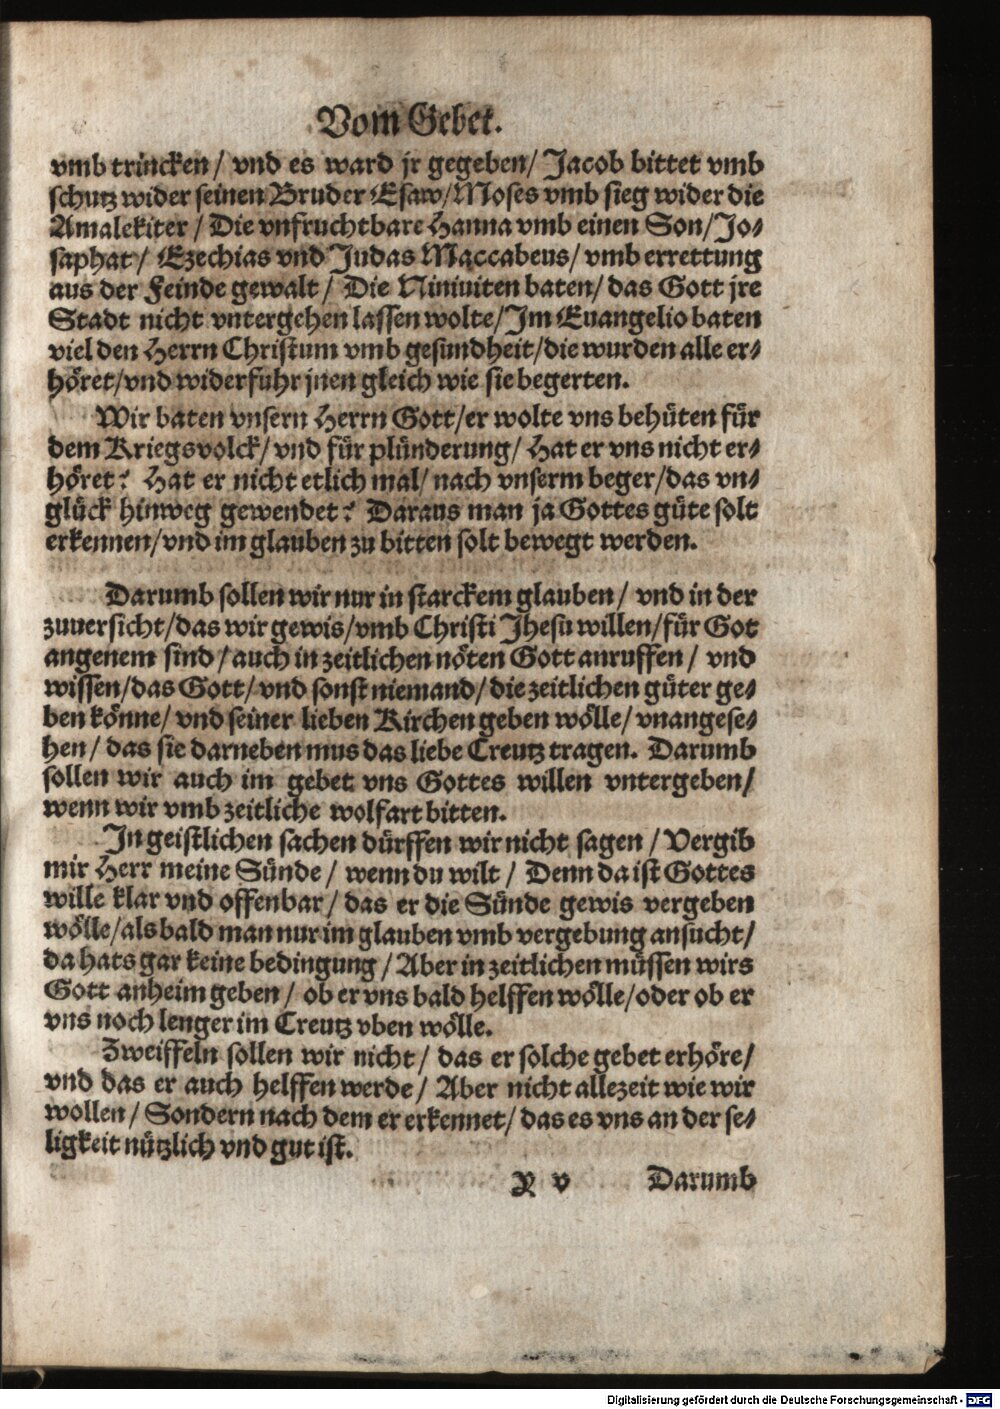 Vom Gebet.
vmb trincken/ vnd es ward jr gegeben/ Jacob bittet vmb
schutz wider seinen Bruder Esaw/ Moses vmb sieg wider die
Amalekiter / Die vnfruchtbare Hanna vmb einen Son/ Jo-
saphat/ Ezechias vnd Judas Maccabeus/ vmb errettung
aus der Feinde gewalt/ Die Niniuiten baten/ das Gott jre
Stadt nicht vntergehen lassen wolte/ Im Euangelio baten
viel den Herrn Christum vmb gesundheit/ die wurden alle er-
höret/ vnd widerfuhr jnen gleich wie sie begerten.
Wir baten vnsern Herrn Gott/ er wolte vns behüten für
dem Kriegsvolck/ vnd für plünderung/ Hat er vns nicht er-
höret? Hat er nicht etlich mal/ nach vnserm beger/ das vn-
glück hinweg gewendet? Daraus man ja Gottes güte solt
erkennen/ vnd im glauben zu bitten solt bewegt werden.
Darumb sollen wir nur in starckem glauben/ vnd in der
zuuersicht/ das wir gewis/ vmb Christi Jhesu willen/ für Got
angenem sind/ auch in zeitlichen nöten Gott anruffen/ vnd
wissen/ das Gott/ vnd sonst niemand/ die zeitlichen güter ge-
ben könne/ vnd seiner lieben Kirchen geben wölle/ vnangese-
hen/ das sie darneben mus das liebe Creutz tragen. Darumb
sollen wir auch im gebet vns Gottes willen vntergeben/
wenn wir vmb zeitliche wolfart bitten.
In geistlichen sachen dürffen wir nicht sagen/ Vergib
mir Herr meine Sünde/ wenn du wilt/ Denn da ist Gottes
wille klar vnd offenbar/ das er die Sünde gewis vergeben
wölle/ als bald man nur im glauben vmb vergebung ansucht/
da hats gar keine bedingung/ Aber in zeitlichen müssen wirs
Gott anheim geben/ ob er vns bald helffen wölle/ oder ob er
vns noch lenger im Creutz vben wölle.
Zweiffeln sollen wir nicht/ das er solche gebet erhöre/
vnd das er auch helffen werde/ Aber nicht allezeit wie wir
wollen/ Sondern nach dem er erkennet/ das es vns an der se-
ligkeit nützlich vnd gut ist.
v Darumb
Digitalisierung gefördert durch die Deutsche Forschungsgemeinschaft - DFG